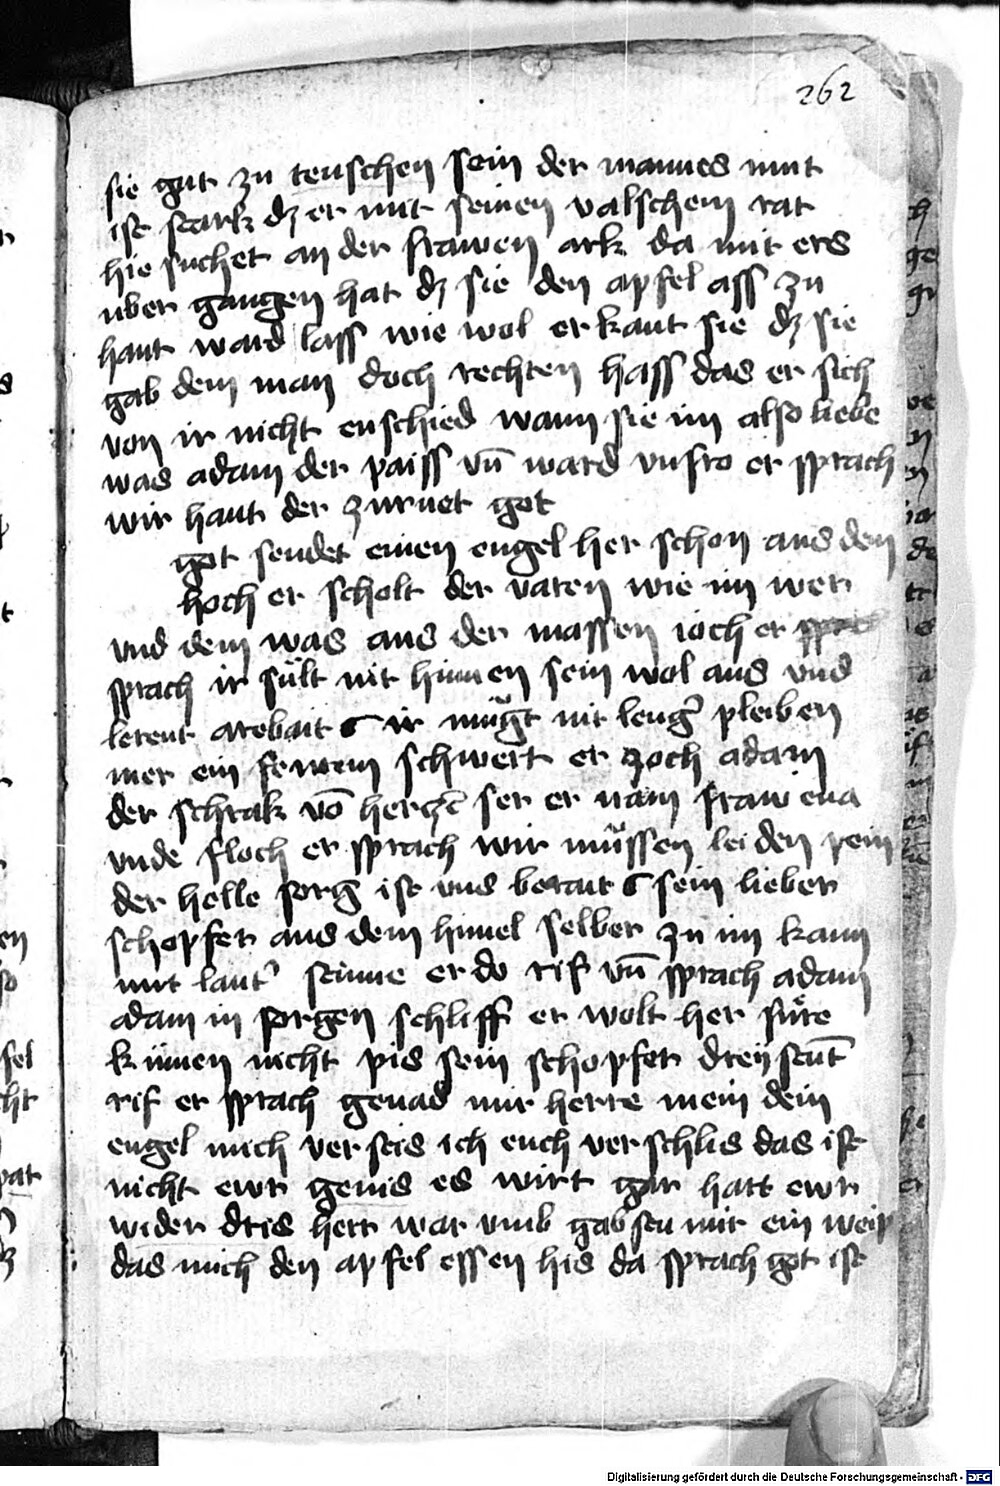 262
sie gut zu teuschen sein der mannes mut
ist stark dz er mit seinen valschem rat
hie suchet an der frawen ark da mit ers
uber gangen hat dz sie den apfel ass zu
hant ward lass wie wol erkant sie dz sie
gab dem man doch rechten hass das er sich
von ir nicht enschied wann sie im also liebe
was adam der paiss vn̄ ward vnfro er sprach
wir hant der zurnet got
got sendet einen engel her schon aus dem
hoch er scholt der varen wie im wer
vnd dem was aus der massen ioch er
sprach ir sült nit hinnen sein wol aus vnd
lerent arebait ir mügt nit leng' pleiben
mer ein fewrein schwert er zoch adam
der schrak vō herczē ser er nam fraw eua
vnde floch er sprach wir müssen leiden pein
der helle sorg ist vns berait sein lieber
schopfer aus dem himel selber zu im kam
mit laut' stimme er do rif vn̄ sprach adam
adam in sorgen schliff er wolt her füre
kumen nicht pis sein schopfer dreÿ stūt
rif er sprach genad mir herre mein dein
engel mich verstis ich euch verschlis das ist
nicht ewr genis es wirt gar hart ewr
wider dris herr war vmb gabstu mir ein weip
das mich den apfel essen his da sprach got ist
Digitalisierung gefördert durch die Deutsche Forschungsgemeinschaft - DFG